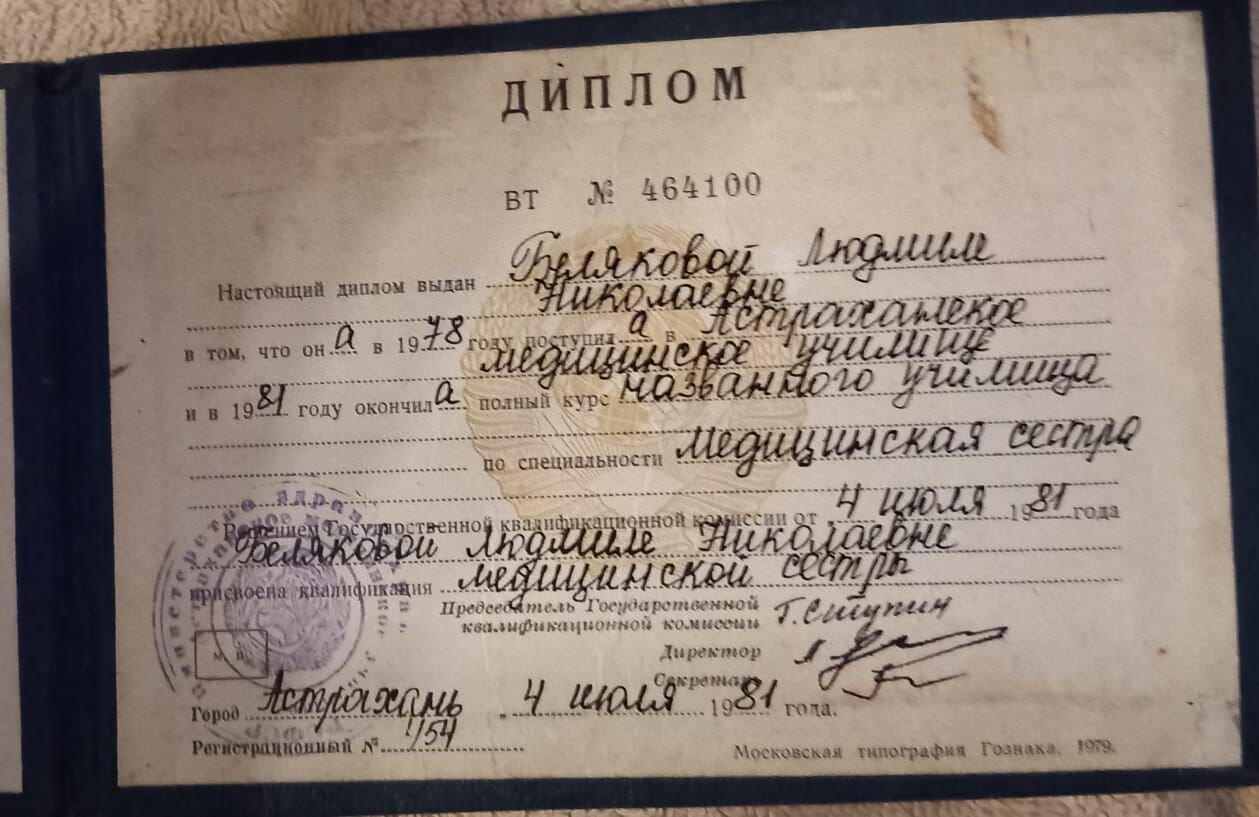 ДИПЛОМ
ВТ № 464100
Настоящий диплом выдан Беляковой Людмиле
Николаевне
в том, что он а в 1978 году поступил а в Астраханское
медицинское училище
и в 1981 году окончил а полный курс названного училища
по специальности медицинская сестра
Решением Государственной квалификационной комиссии от 4 июля 1981 года
Беляковой Людмиле Николаевне
присвоена квалификация медицинской сестры
Председатель Государственной
квалификационной комиссии Г. Ступин
Директор
Секретарь
М П
Город Астрахань 4 июля 1981 года.
Регистрационный № 454
Московская типография Гознака. 1979.
Министерство здрав